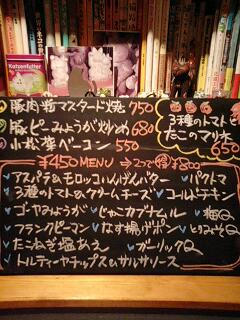 Katzenfutter
豚肉粒マスタード焼 750
豚ピーみょうが炒め 680
小松菜ベーコン 550
3種のトマトと
たこのマリネ
650
¥450MENU → 2つで ¥800
アスパラ&モロッコいんげんバター パクトマ
3種トマトのクリームチーズ コールドチキン
ゴーヤみょうが じゃこカブナムル 梅Q
フランクピーマン なす揚げポン とりみそQ
たこねぎ塩あえ ガーリックQ
トルティーヤチップス&サルサソース